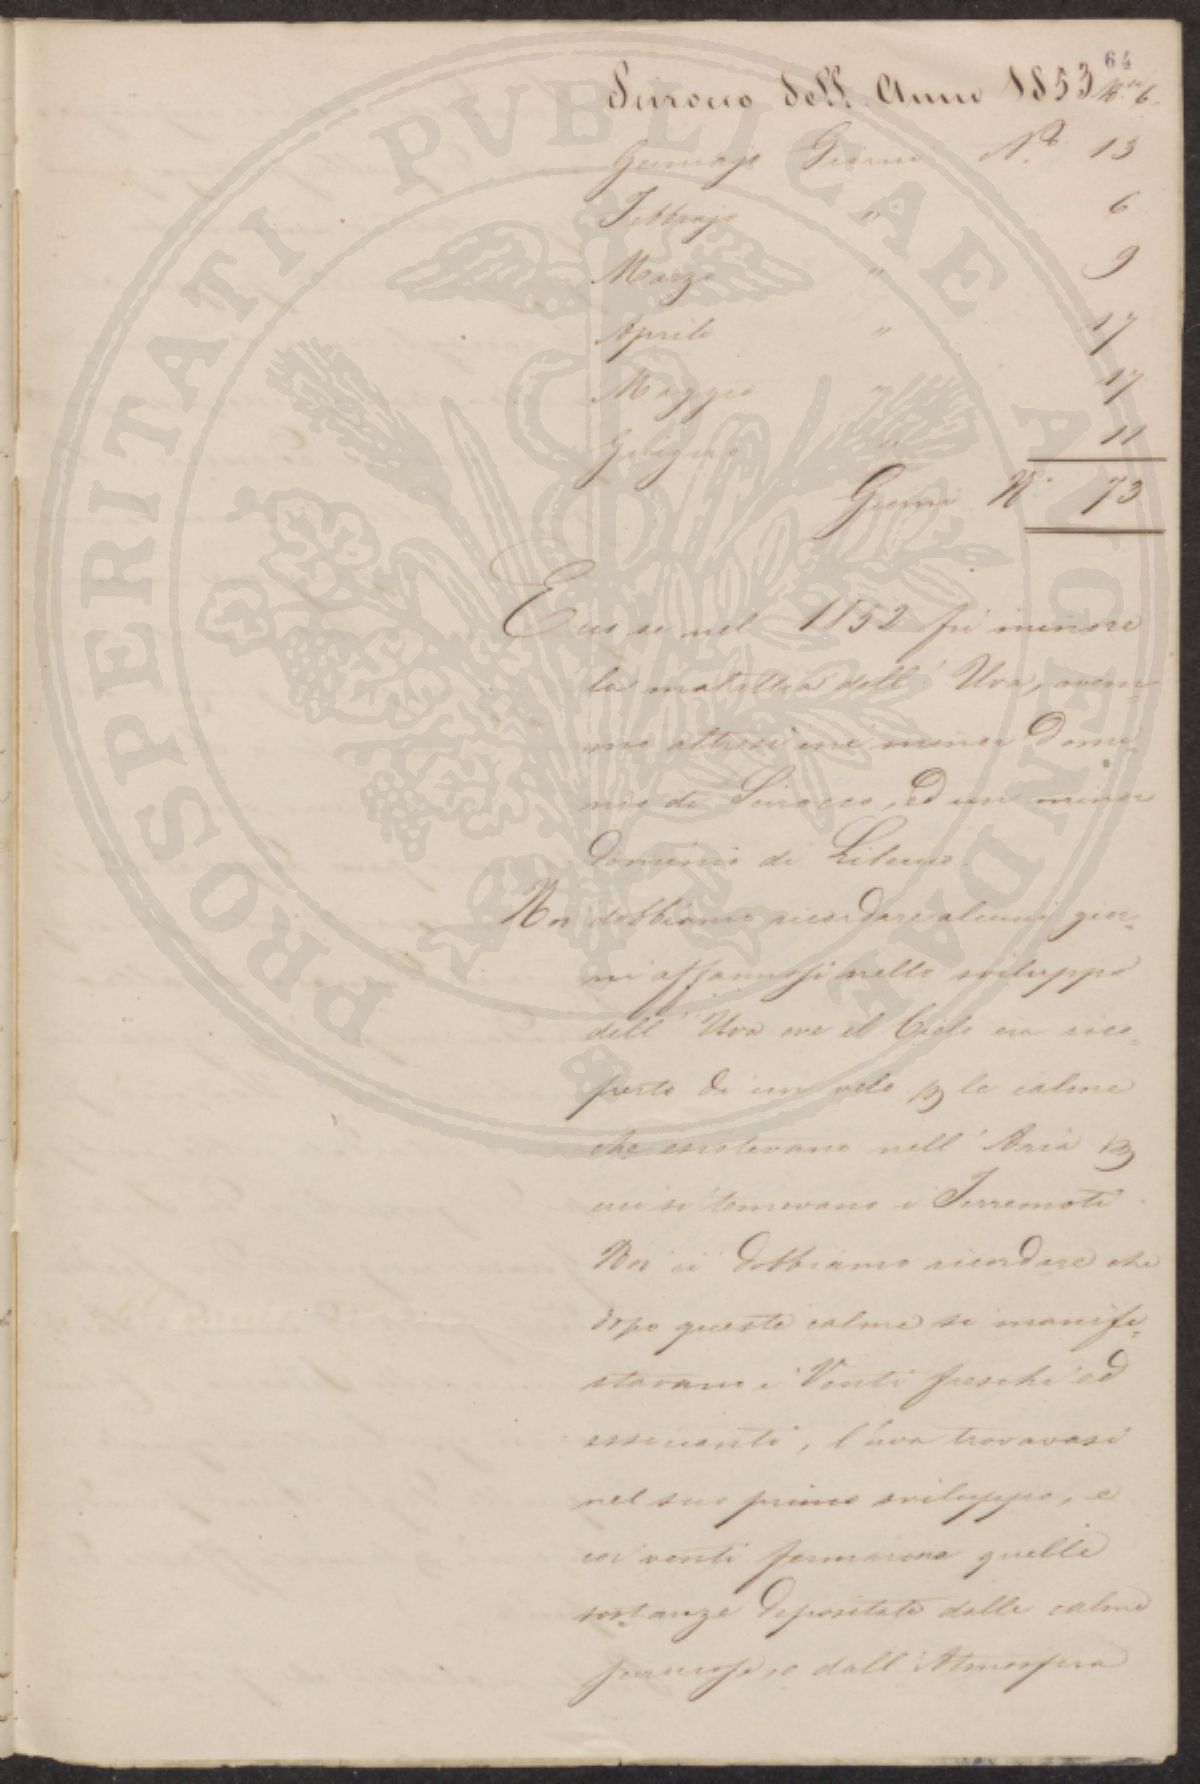 64
Sirocco dell' Anno 1853 N.º 6.
Gennajo Giorni N.º 13
Febbrajo " 6
Marzo " 9
Aprile " 17
Maggio " 17
Giugno " 11
Giorni N.º 73
E se nel 1852 fù minore
la malattia dell' Uva, avem=
mo altresì un minor Domi=
nio di Sirocco, ed un minor
Dominio di Libeccio.
Noi dobbiamo ricordare alcuni gior=
ni affannosi nello sviluppo
dell' Uva ove il Cielo era rico=
perto di un velo p le calme
che esistevano nell' Aria p
cui si temevano i Terremoti.
Noi ci dobbiamo ricordare che
dopo queste calme si manife=
stavano i Venti freschi ed
essicanti, l'uva trovavasi
nel suo primo sviluppo, e
coi venti fermarono quelle
sostanze depositate dalle calme
, o dall' Atmosfera
PROSPERITATI PVBLICAE AVGENDAE